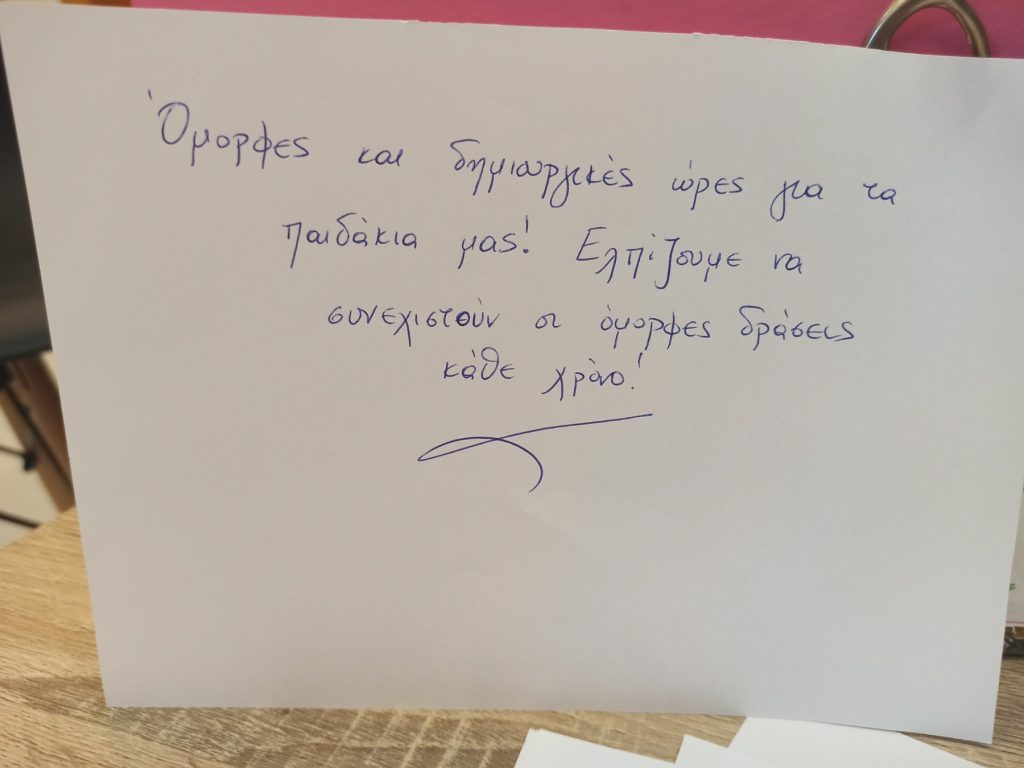 Όμορφες και δημιουργικές ώρες για τα
παιδάκια μας! Ελπίζουμε να
συνεχιστούν οι όμορφες δράσεις
κάθε χρόνο!